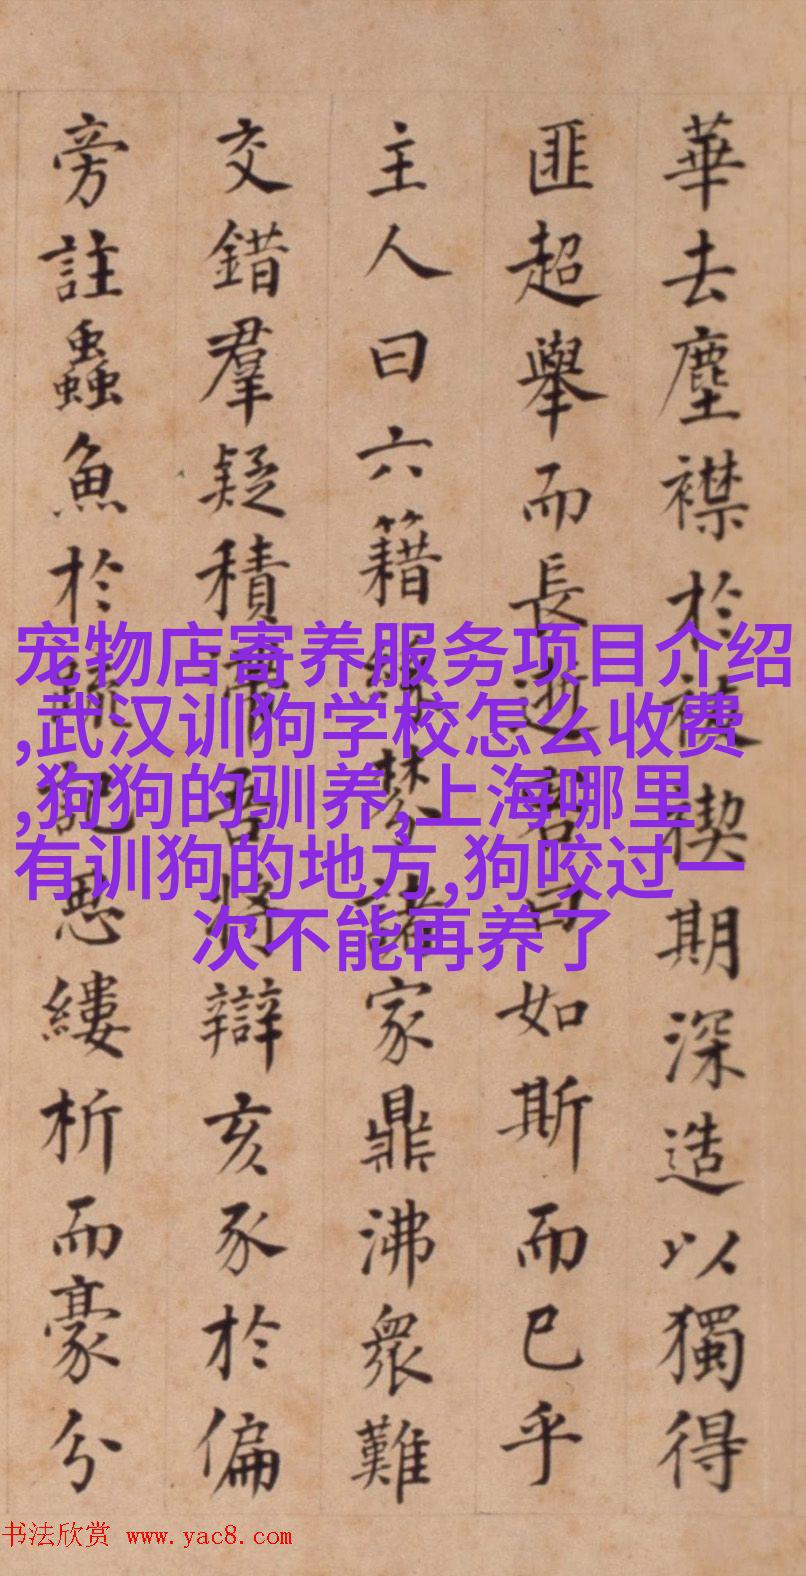 華去塵襟於被禊期深造以獨得
匪超舉而長逝君曰如斯而已乎
主人曰六籍紛𦶜諸家鼎沸衆難
交錯羣疑積滯吾將辯亥豕於偏
旁註蟲魚於疏記悉縷析而豪分
宠物店寄养服务项目介绍
,武汉训狗学校怎么收费
,狗狗的驯养,上海哪里
有训狗的地方,狗咬过一
次不能再养了
书法欣赏 www.yac8.com